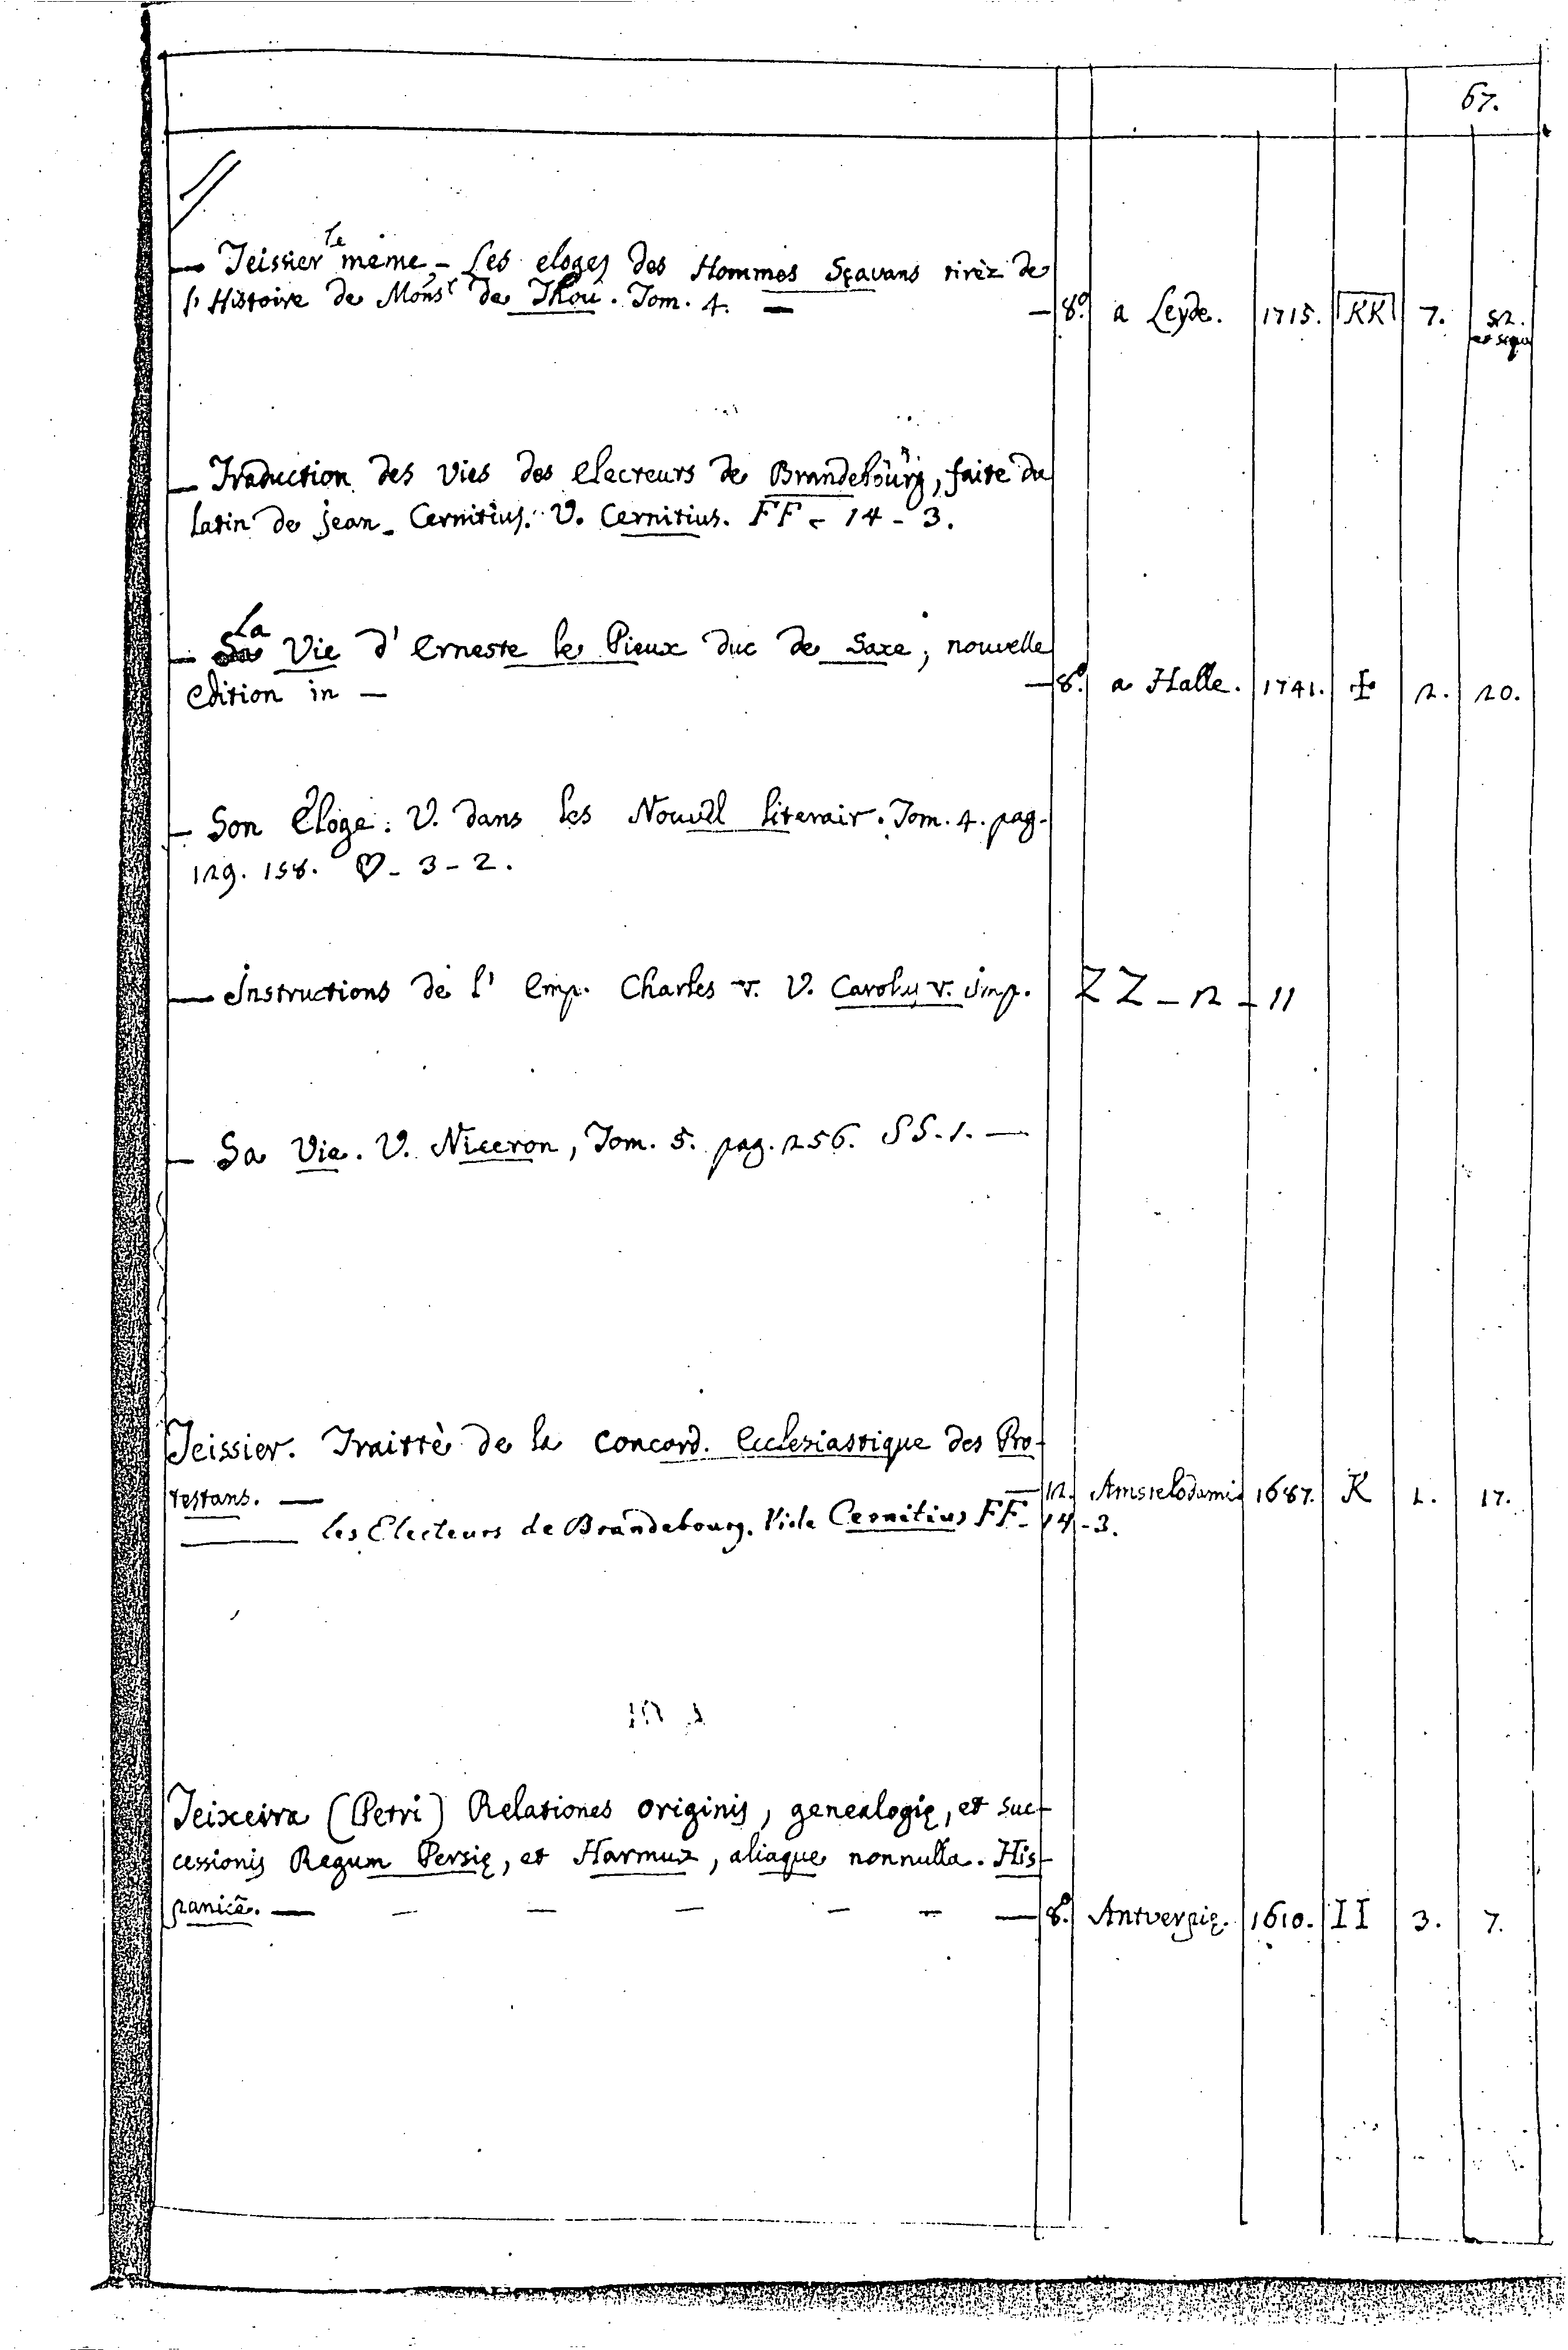 67.
— Teissier le meme, – Les eloges des Hommes Sçavans tirèz de
l'Histoire de Mons.r de Thou. Tom. 4. — — 8.o a Leyde. 1715. KK 7. 52. et sequ
— Traduction des Vies des Electeurs de Brandebourg, faite du
latin de jean Cernitius. V. Cernitius. FF - 14 - 3.
— La Vie d'Erneste le Pieux duc de Saxe, nouvelle
edition in — — 8.o a Halle. 1741. ✠ 2. 20.
— Son Eloge. V. dans les Nouvell literair. Tom. 4. pag.
129. 158. ♡ - 3 - 2.
— Instructions de l'Emp. Charles V. V. Carolus V. imp. ZZ - 12 - 11
— Sa Vie. V. Niceron, Tom. 5. pag. 256. SS. 1. —
Teissier. Traittè de la Concord. Ecclesiastique des Pro-
testans. — — 12. Amstelodami 1687. K 1. 17.
— les Electeurs de Brandebourg. Vide Cernitius FF - 14 - 3.
Teixeira (Petri) Relationes originis, genealogię, et suc-
cessionis Regum Persię, et Harmuz, aliaque nonnulla. His-
panicè. — — — — — — — 8.o Antverpię. 1610. II 3. 7.